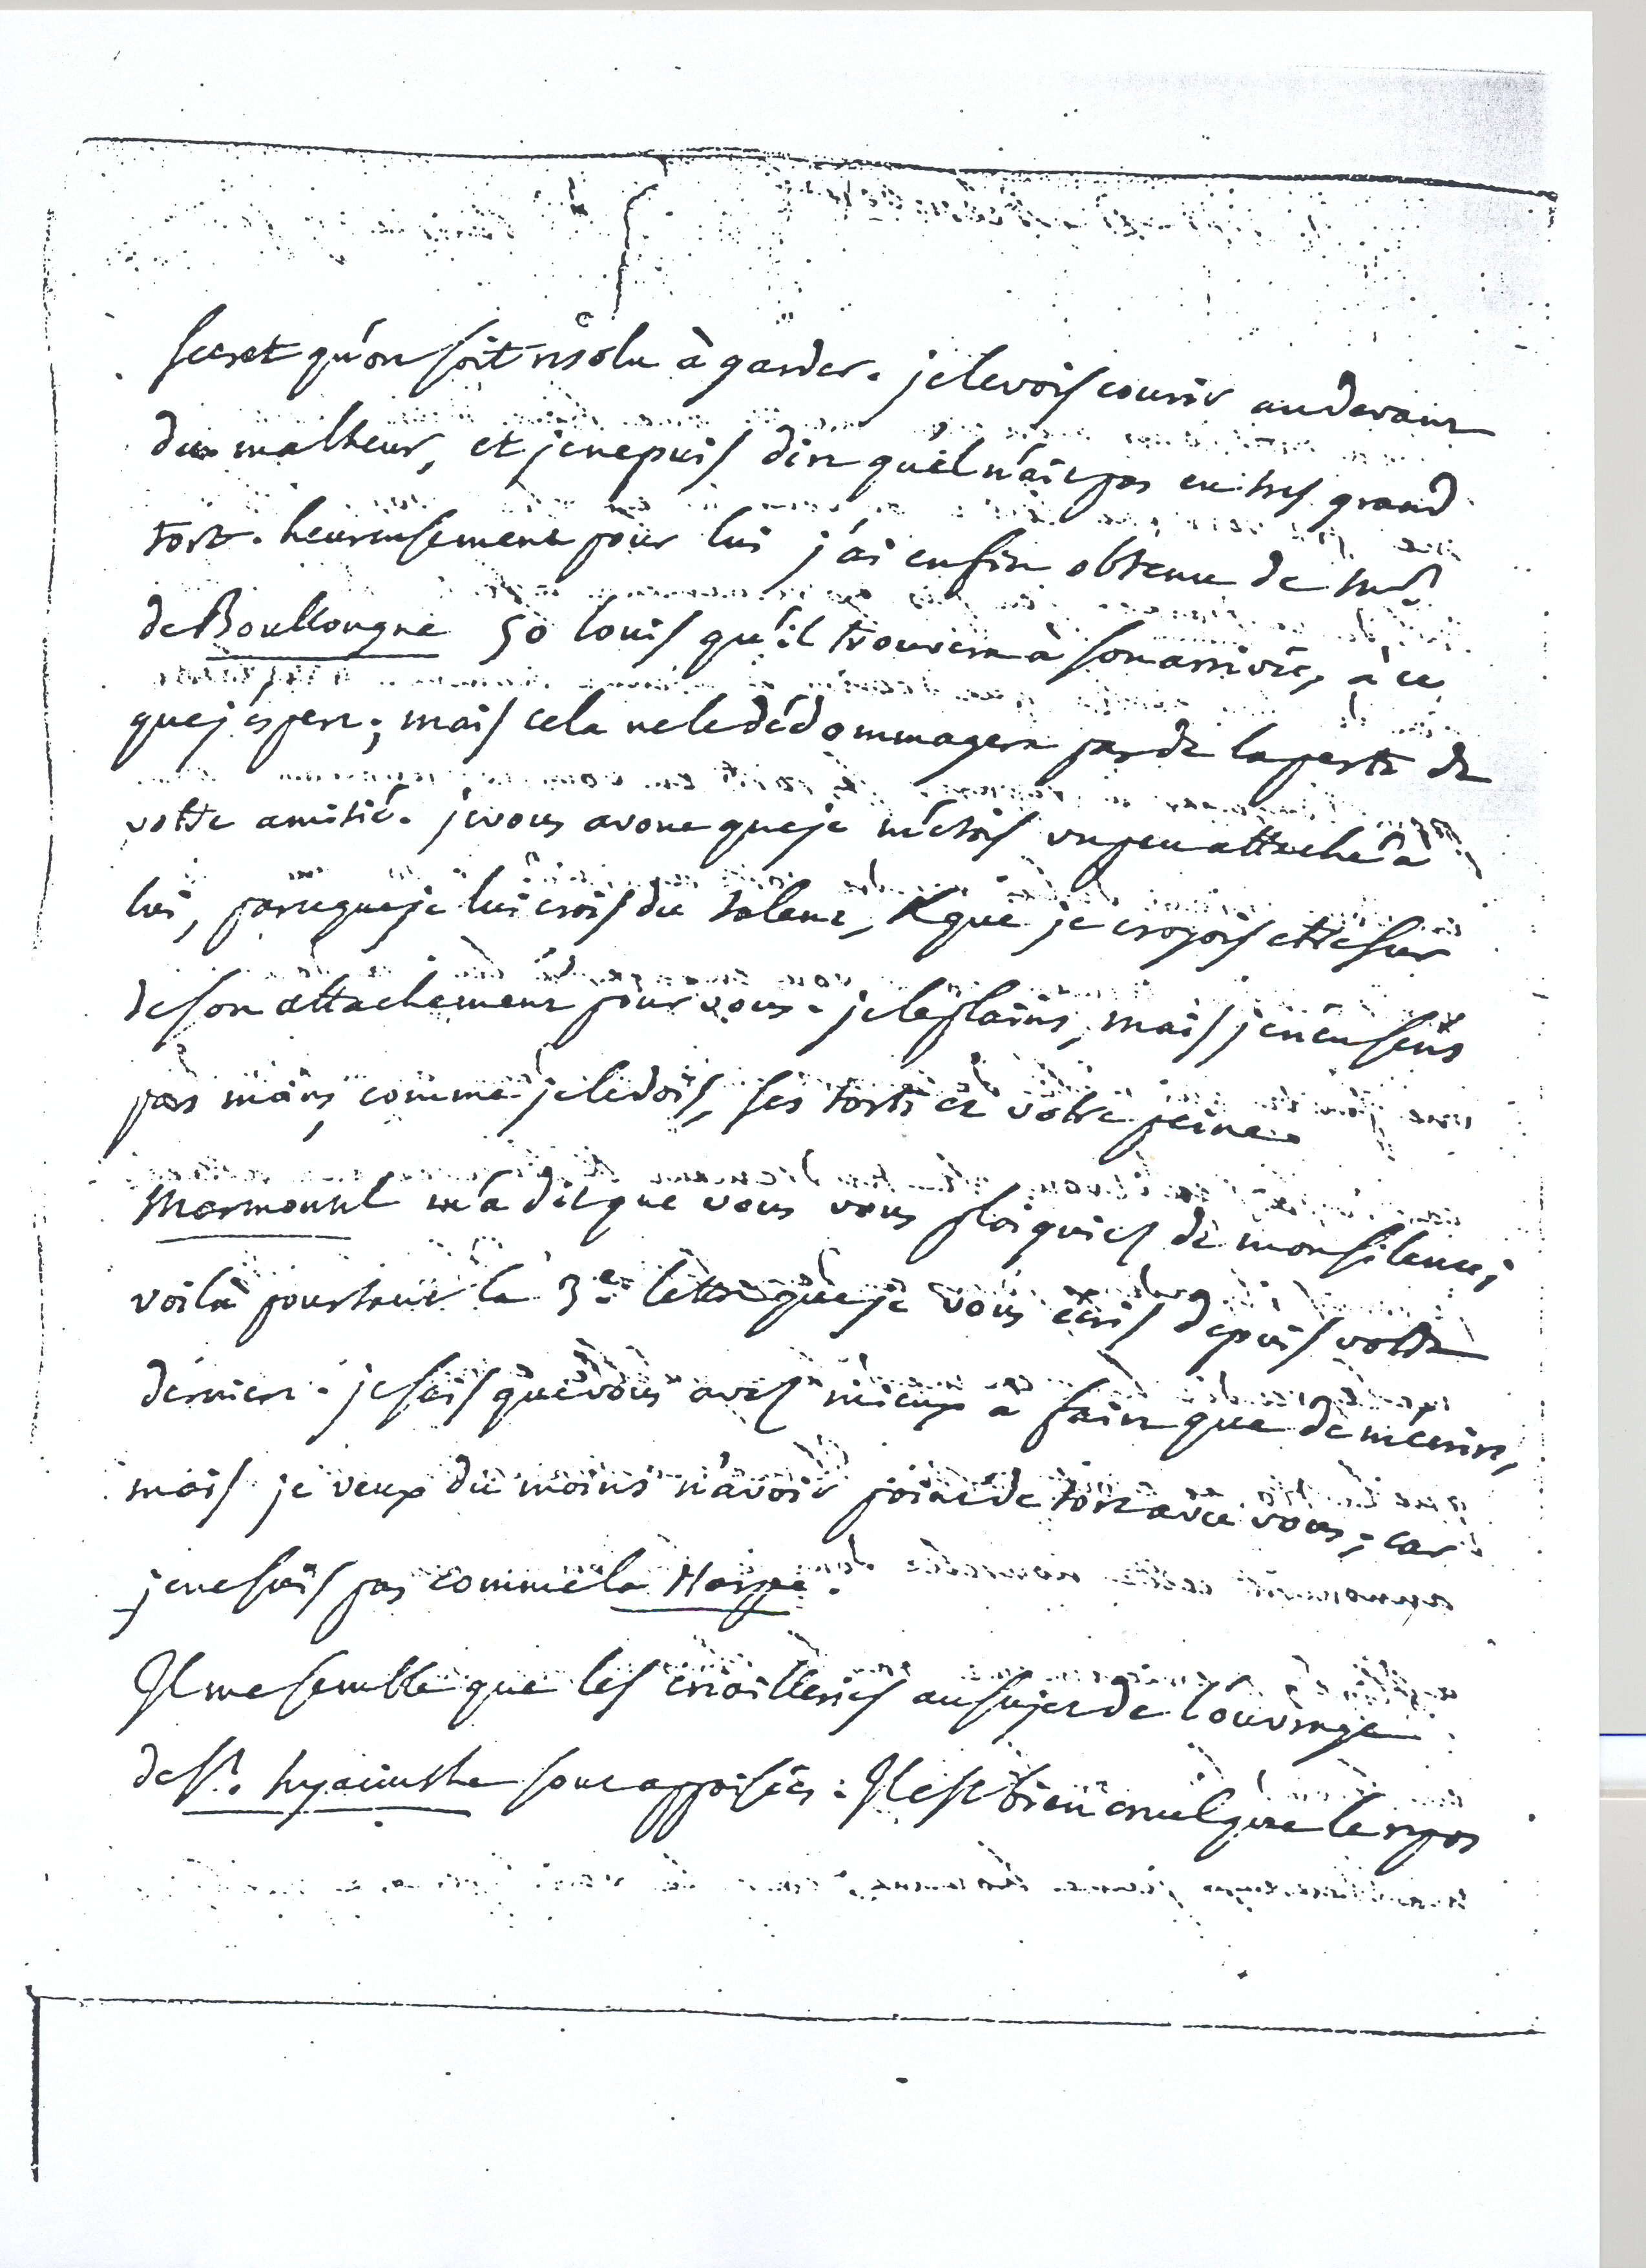 secret qu'on soit résolu à garder. je le vois courir au devant
du malheur, et je ne puis dire qu'il n'ait pas eu tres grand
tort. heureusement pour lui j'ai enfin obtenu de Mr
de Boullongne 50 louis qu'il trouvera à son arrivée, à ce
que j'espere; mais cela ne le dédommagera pas de la perte de
votre amitié. je vous avoue que je m'etois un peu attaché à
lui, parceque je lui crois du talent, & que je croyois etre sur
de son attachement pour vous. je le plains, mais je n'en sens
pas moins, comme je le dois, ses torts et votre peine.
Marmontel m'a dit que vous vous plaigniez de mon silence;
voilà pourtant la 3e. lettre que je vous écris depuis votre
derniere. je sais que vous avez mieux à faire que de m'écrire,
mais je veux du moins n'avoir point de tort avec vous; car
je ne suis pas comme la Harpe.
Il me semble que les criailleries au sujet de l'ouvrage
de St. hyacinthe sont appaisées. Il est bien cruel que le repos